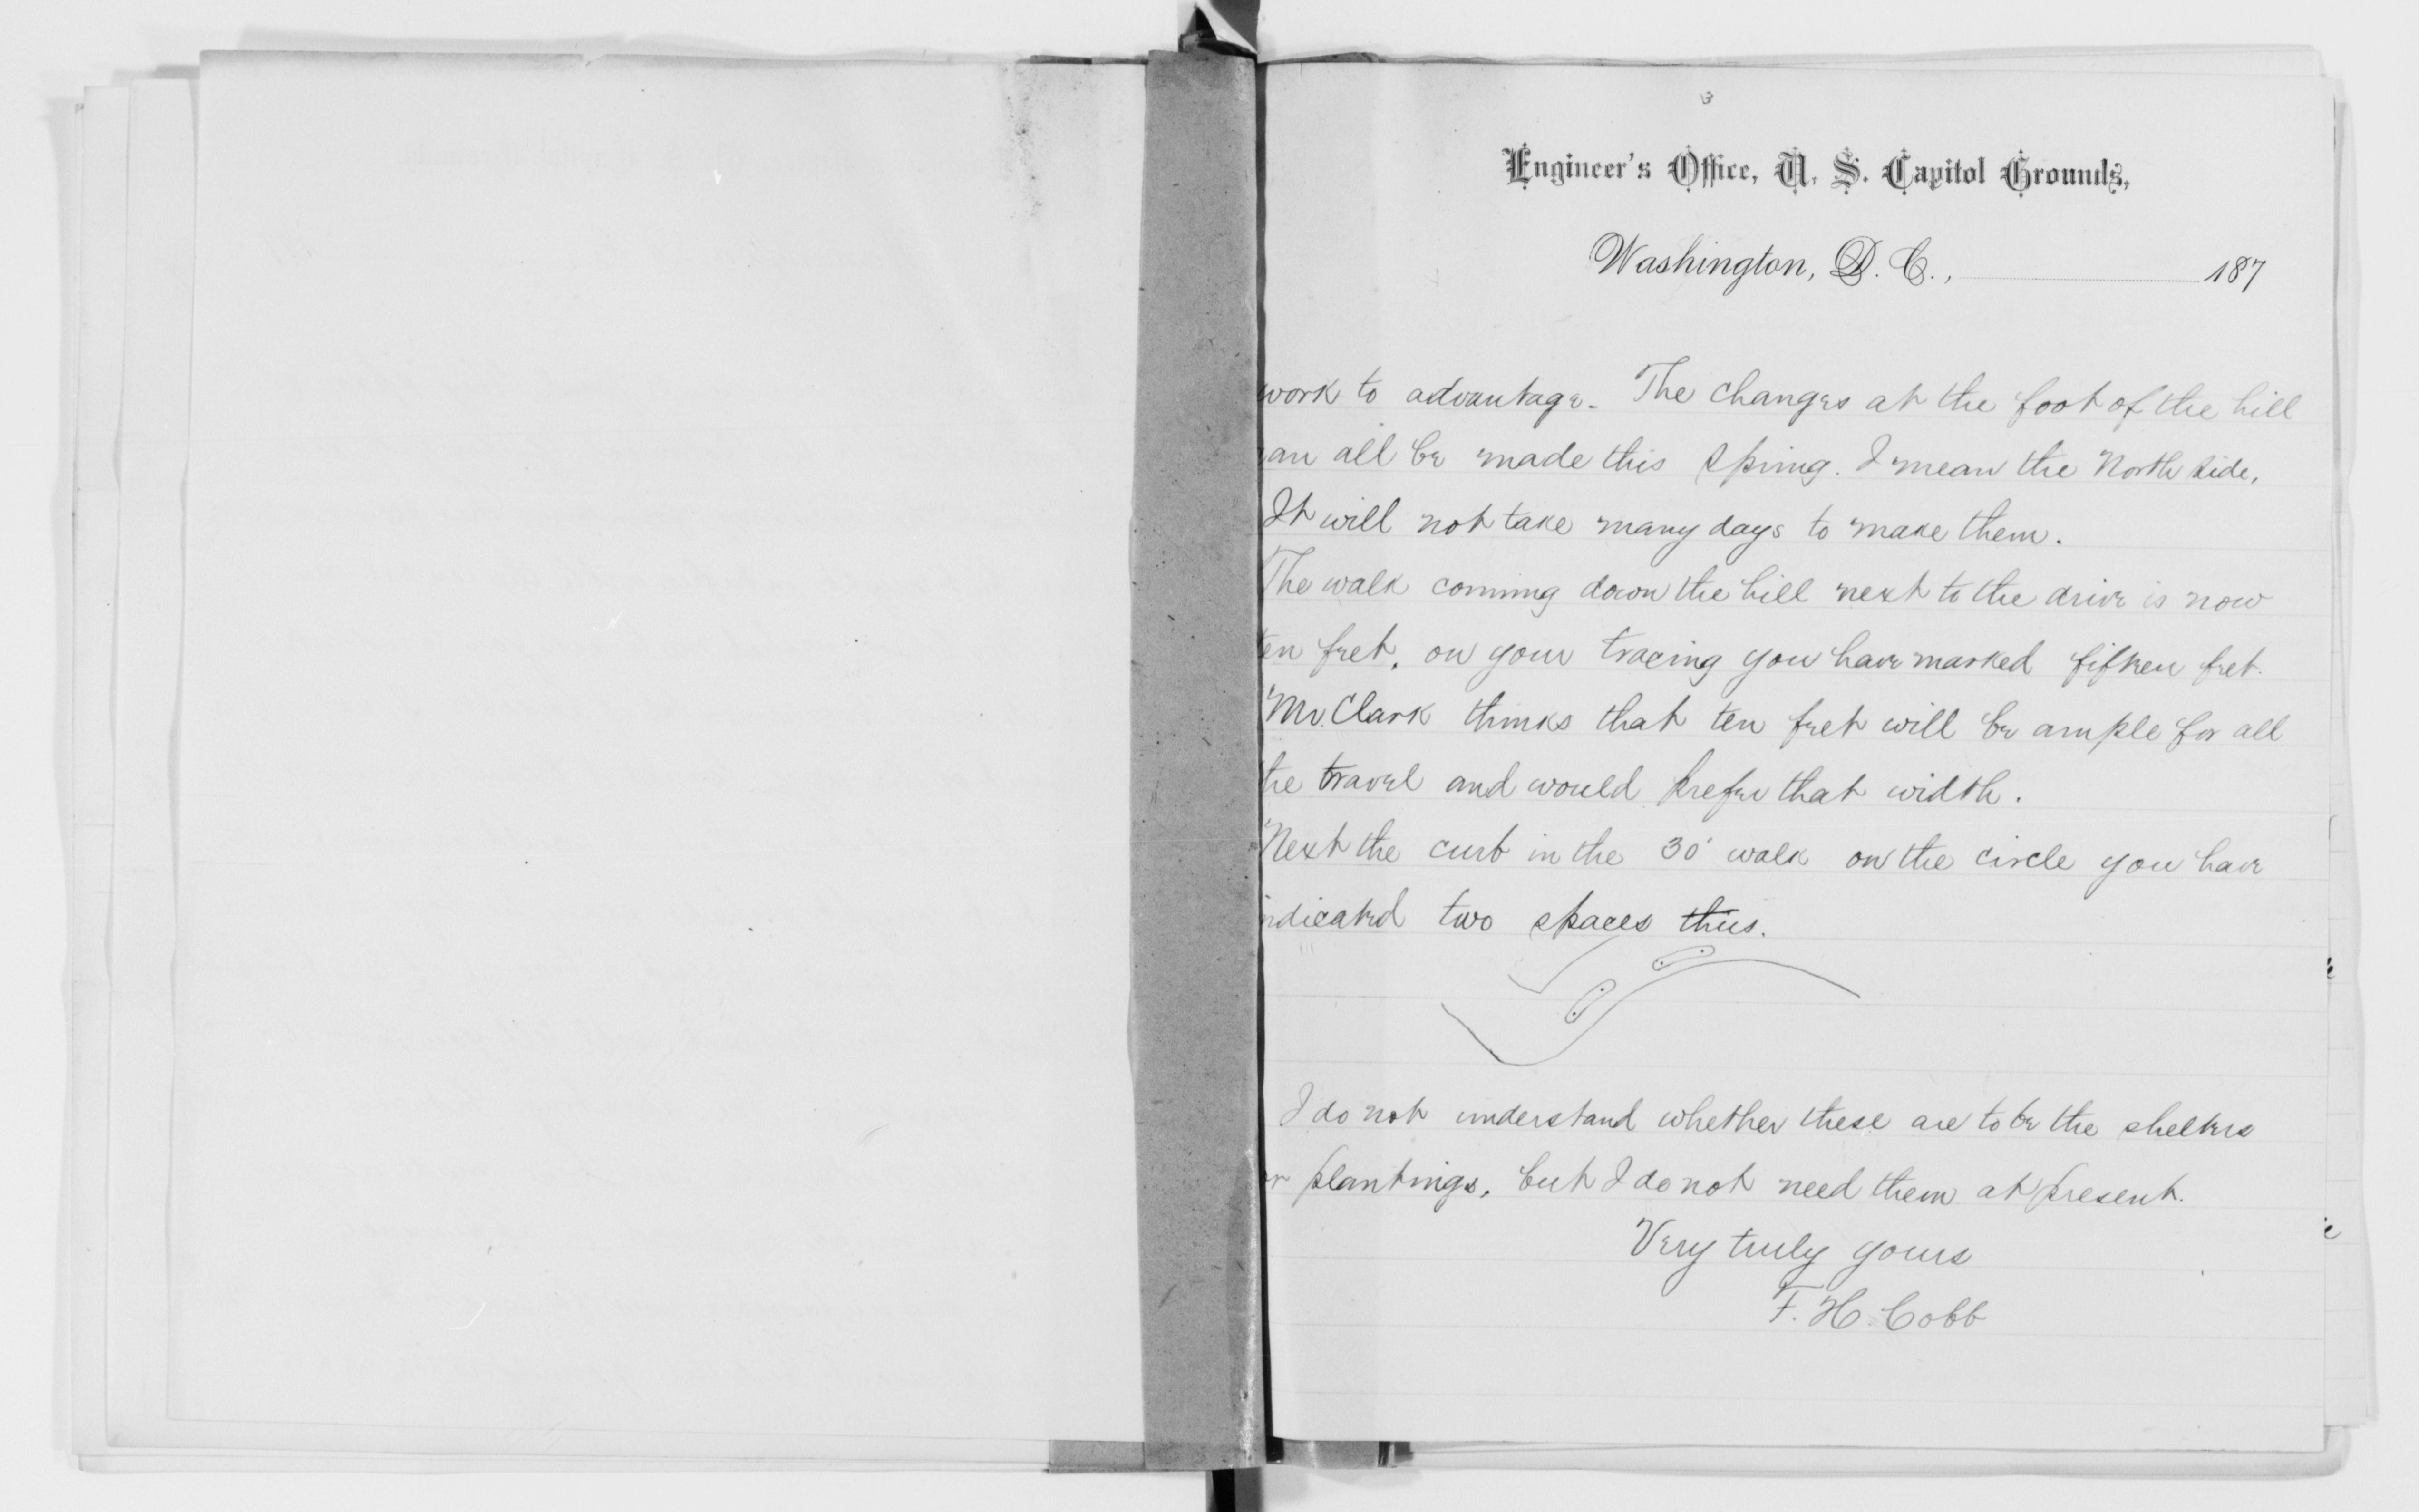 3
Engineer's Office, U. S. Capitol Grounds,
Washington, D. C., 187
work to advantage. The changes at the foot of the hill
can all be made this spring. I mean the North side.
It will not take many days to make them.
The walk coming down the hill next to the drive is now
ten feet, on your tracing you have marked fifteen feet.
Mr. Clark thinks that ten feet will be ample for all
the travel and would prefer that width.
Next the curb in the 30' walk on the circle you have
indicated two spaces thus.
I do not understand whether these are to be the shelters
or plantings, but I do not need them at present.
Very truly yours
F. H. Cobb